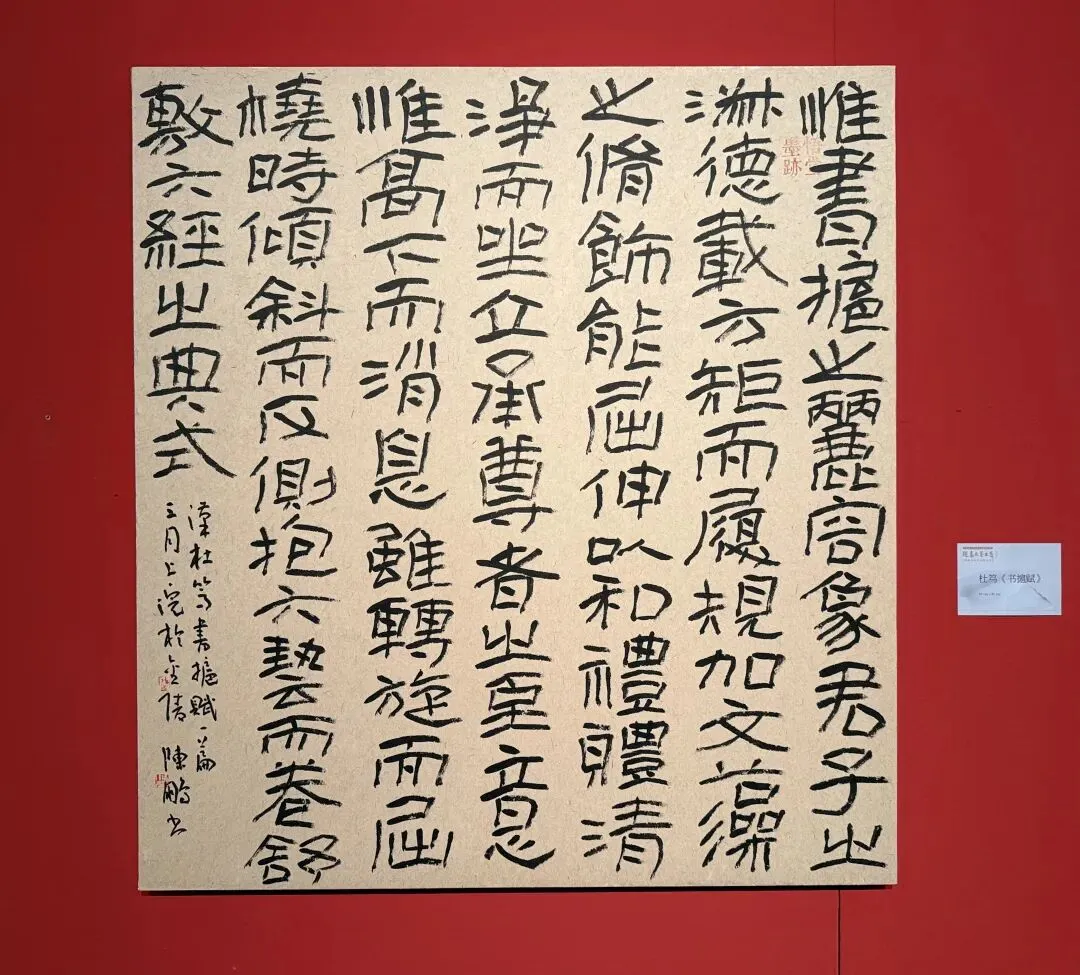 惟書摢之麗容象君子之
淑德載方矩而履規加文藻
之脩飾能屈伸以和禮體清
淨而坐立承尊者之至意
惟高下而消息雖轉旋而屈
橈時傾斜而反側抱六藝而卷舒
敷六經之典式
漢杜篤書摢賦一篇
三月上浣於金陵 陳鵬書
悟堂墨跡
杜笃《书摢赋》